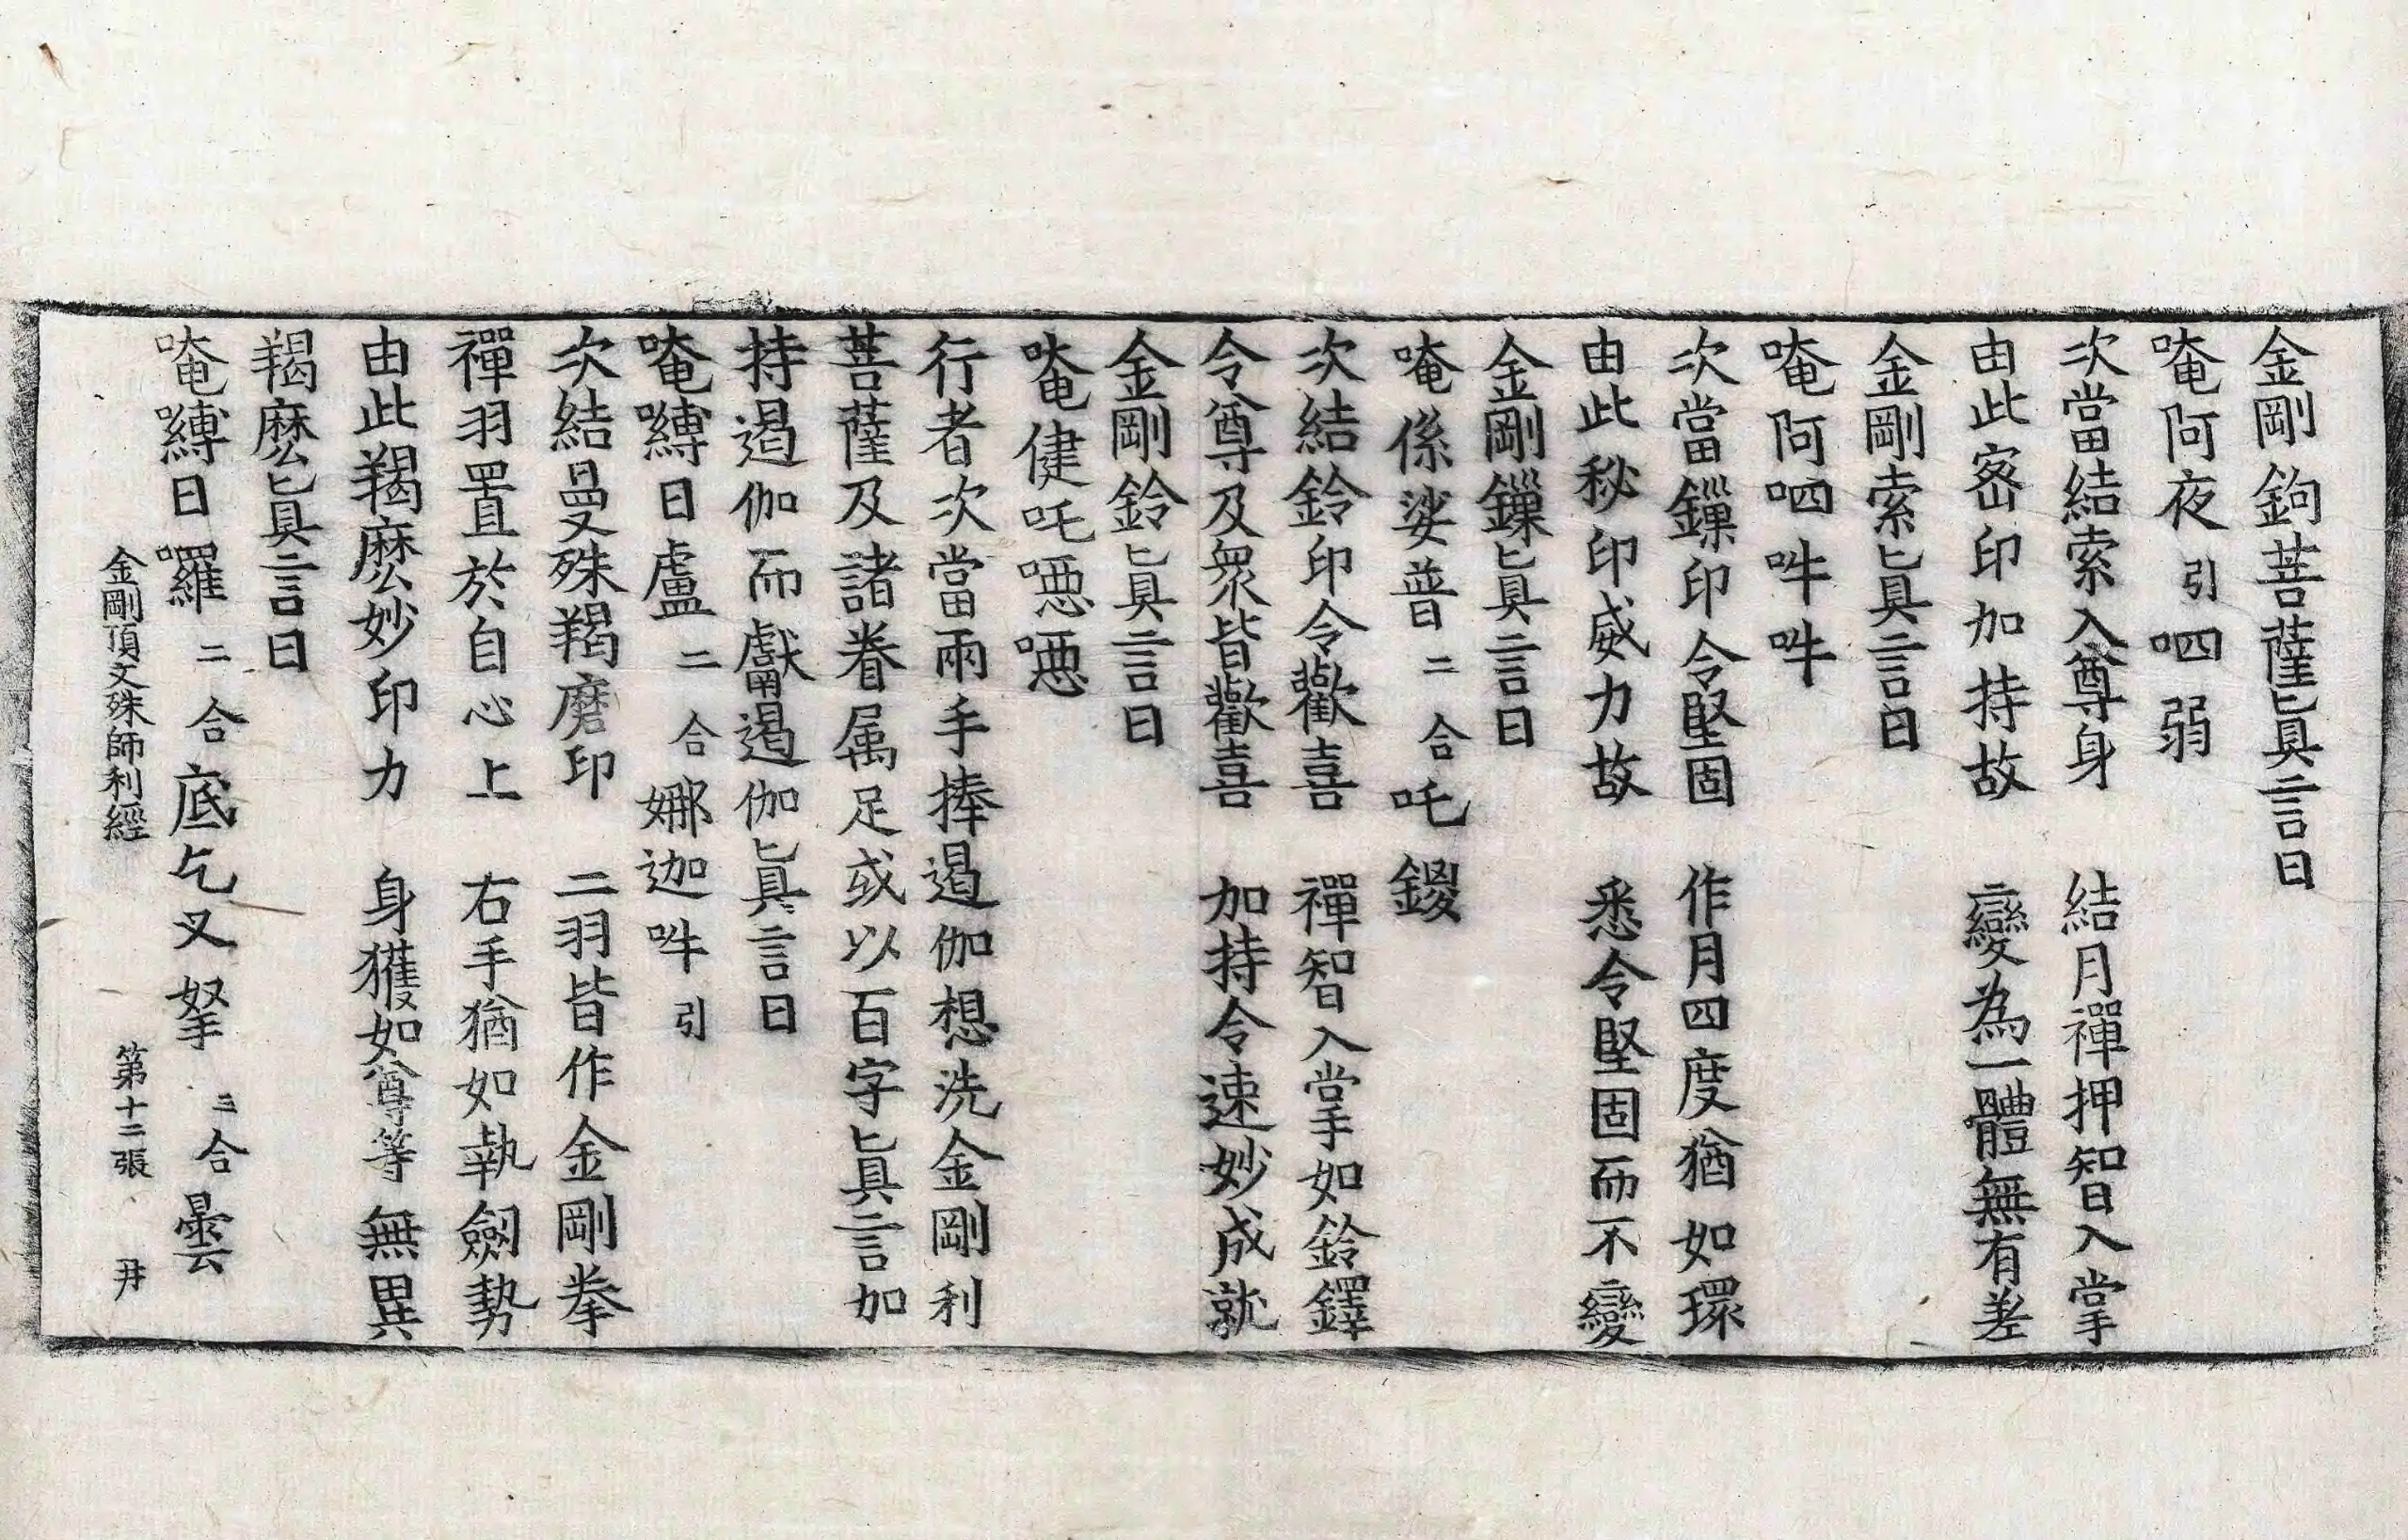 金剛鉤菩薩眞言曰
唵阿夜引呬弱
次當結索入尊身　結月禪押智入掌
由此密印加持故　變為一體無有差
金剛索眞言曰
唵阿呬吽吽
次當鏁印令堅固　作月四度猶如環
由此秘印威力故　悉令堅固而不變
金剛鏁眞言曰
唵係娑普二合吒鑁
次結鈴印令歡喜　禪智入掌如鈴鐸
令尊及衆皆歡喜　加持令速妙成就
金剛鈴眞言曰
唵健吒噁噁
行者次當兩手捧遏伽想洗金剛利
菩薩及諸眷属足或以百字眞言加
持遏伽而獻遏伽眞言曰
唵嚩日盧二合娜迦吽引
次結曼殊羯磨印　二羽皆作金剛拳
禪羽置於自心上　右手猶如執劒勢
由此羯麽妙印力　身獲如尊等無異
羯麽眞言曰
唵嚩日囉二合底乞叉拏三合曇
金剛頂文殊師利經　第十二張　丹